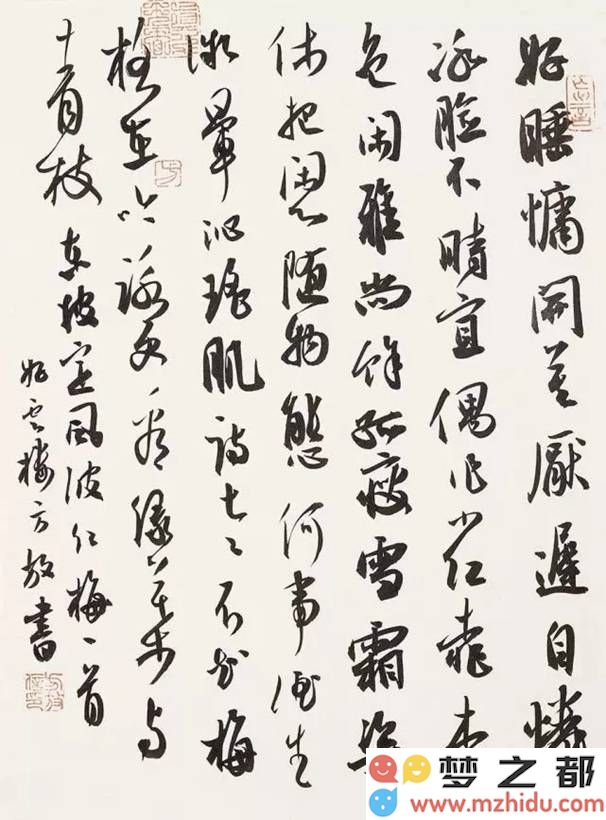 好睡慵開莫厭遲自憐
冰臉不時宜偶作小红桃杏
色闲雅尚餘孤瘦雪霜姿
休把闲心随物態何事酒生
微暈沁瑶肌詩老不知梅
格在吟詠更看緑葉与
青枝
东坡定風波红梅一首
好云楼方放書
梦之都
www.mzhidu.com